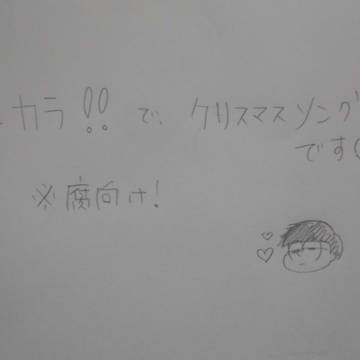 カラ!!で、クリスマスソング
です(
※腐向け!